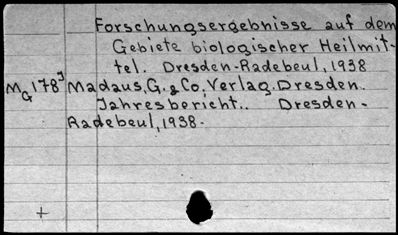 Forschungsergebnisse auf dem
Gebiete biologischer Heilmit-
tel. Dresden-Radebeul, 1938
MG178J Madaus, G. & Co., Verlag. Dresden.
Jahresbericht.. Dresden-
Radebeul, 1938.